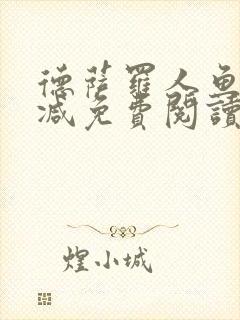 德薩羅人魚
減免費閱讀
煌小城